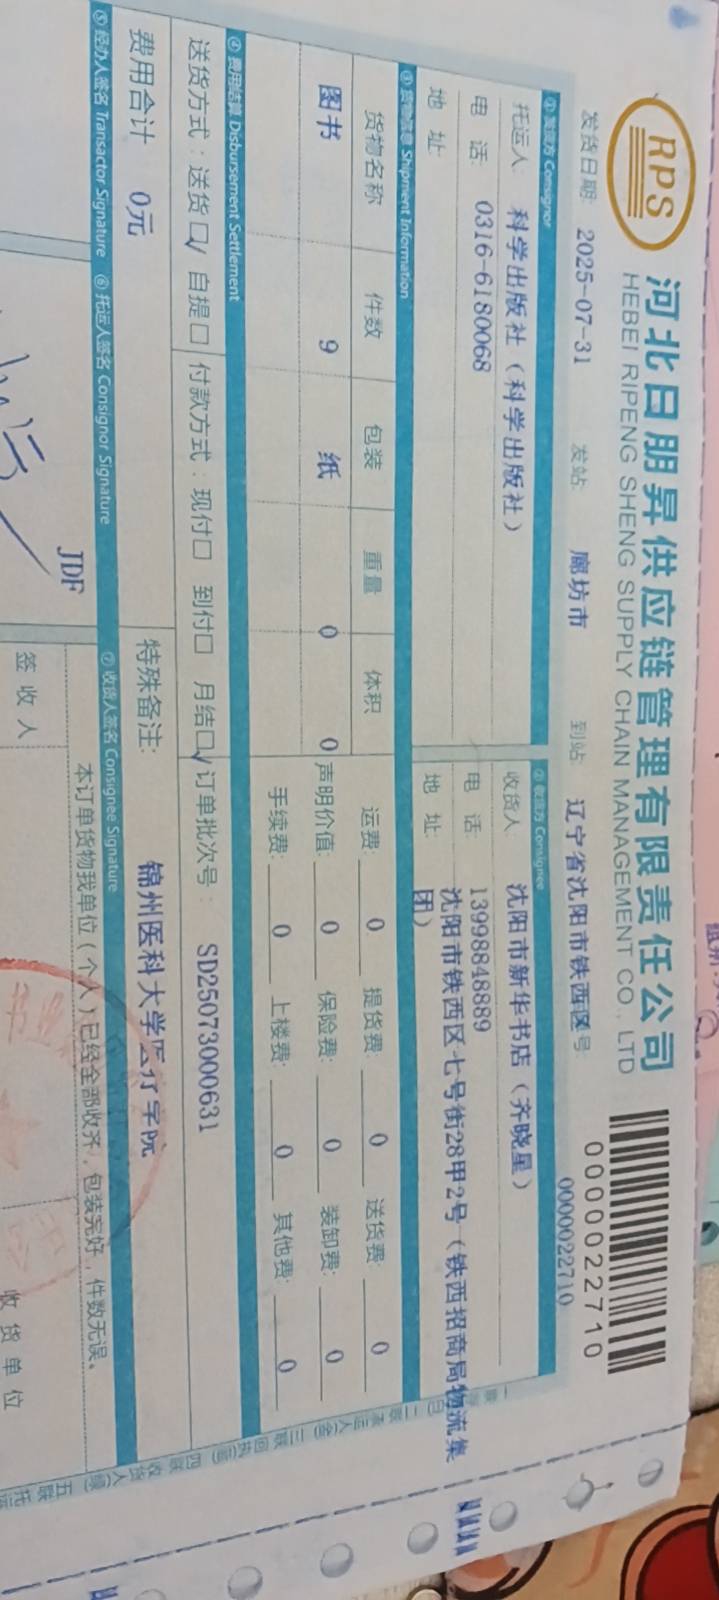 RPS
河北日朋昇供应链管理有限责任公司
HEBEI RIPENG SHENG SUPPLY CHAIN MANAGEMENT CO., LTD
0000022710
发货日期: 2025-07-31 发站: 廊坊市 到站: 辽宁省沈阳市铁西区 号
0000022710
① 发货方 Consignor ② 收货方 Consignee
托运人: 科学出版社(科学出版社) 收货人: 沈阳市新华书店(齐晓星)
电 话: 0316-6180068 电 话: 13998848889
地 址: 地 址: 沈阳市铁西区七号街28甲2号(铁西招商局物流集
团)
③ 货物信息 Shipment Information
货物名称 件数 包装 重量 体积 运费: 0 提货费: 0 送货费: 0
图书 9 纸 0 0 声明价值: 0 保险费: 0 装卸费: 0
手续费: 0 上楼费: 0 其他费: 0
④ 费用结算 Disbursement Settlement
送货方式: 送货☑ 自提□ 付款方式: 现付□ 到付□ 月结☑ 订单批次号: SD25073000631
费用合计 0元 特殊备注: 锦州医科大学医疗学院
⑤ 经办人签名 Transactor Signature ⑥ 托运人签名 Consignor Signature ⑦ 收货人签名 Consignee Signature
本订单货物我单位(个人)已经全部收齐, 包装完好, 件数无误。
JDF
签收人 收货单位